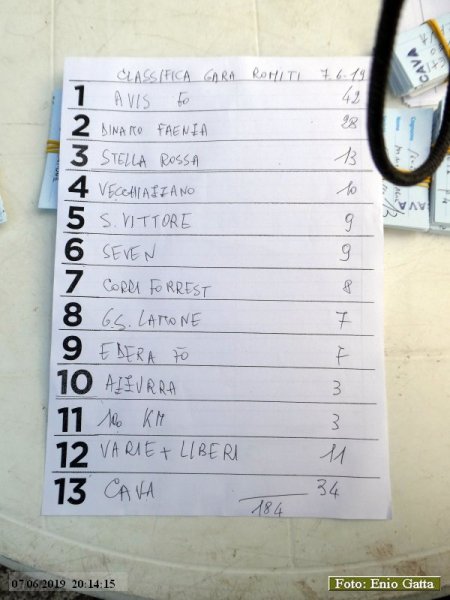 CLASSIFICA GARA ROMITI 7.6.19
1 AVIS FO 42
2 DINAMO FAENZA 28
3 STELLA ROSSA 13
4 VECCHIAZZANO 10
5 S. VITTORE 9
6 SEVEN 9
7 CORRI FORREST 8
8 G.S. LAMONE 7
9 EDERA FO 7
10 AZZURRA 3
11 100 KM 3
12 VARIE + LIBERI 11
13 CAVA 34
184
CAVA
07/06/2019 20:14:15
Foto: Enio Gatta